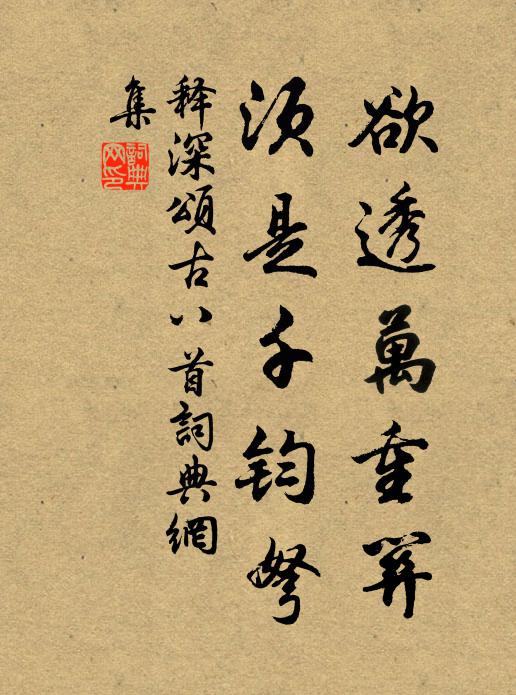 欲透萬重關
須是千鈞弩
释深頌古八首詞典網
集
詞典网印